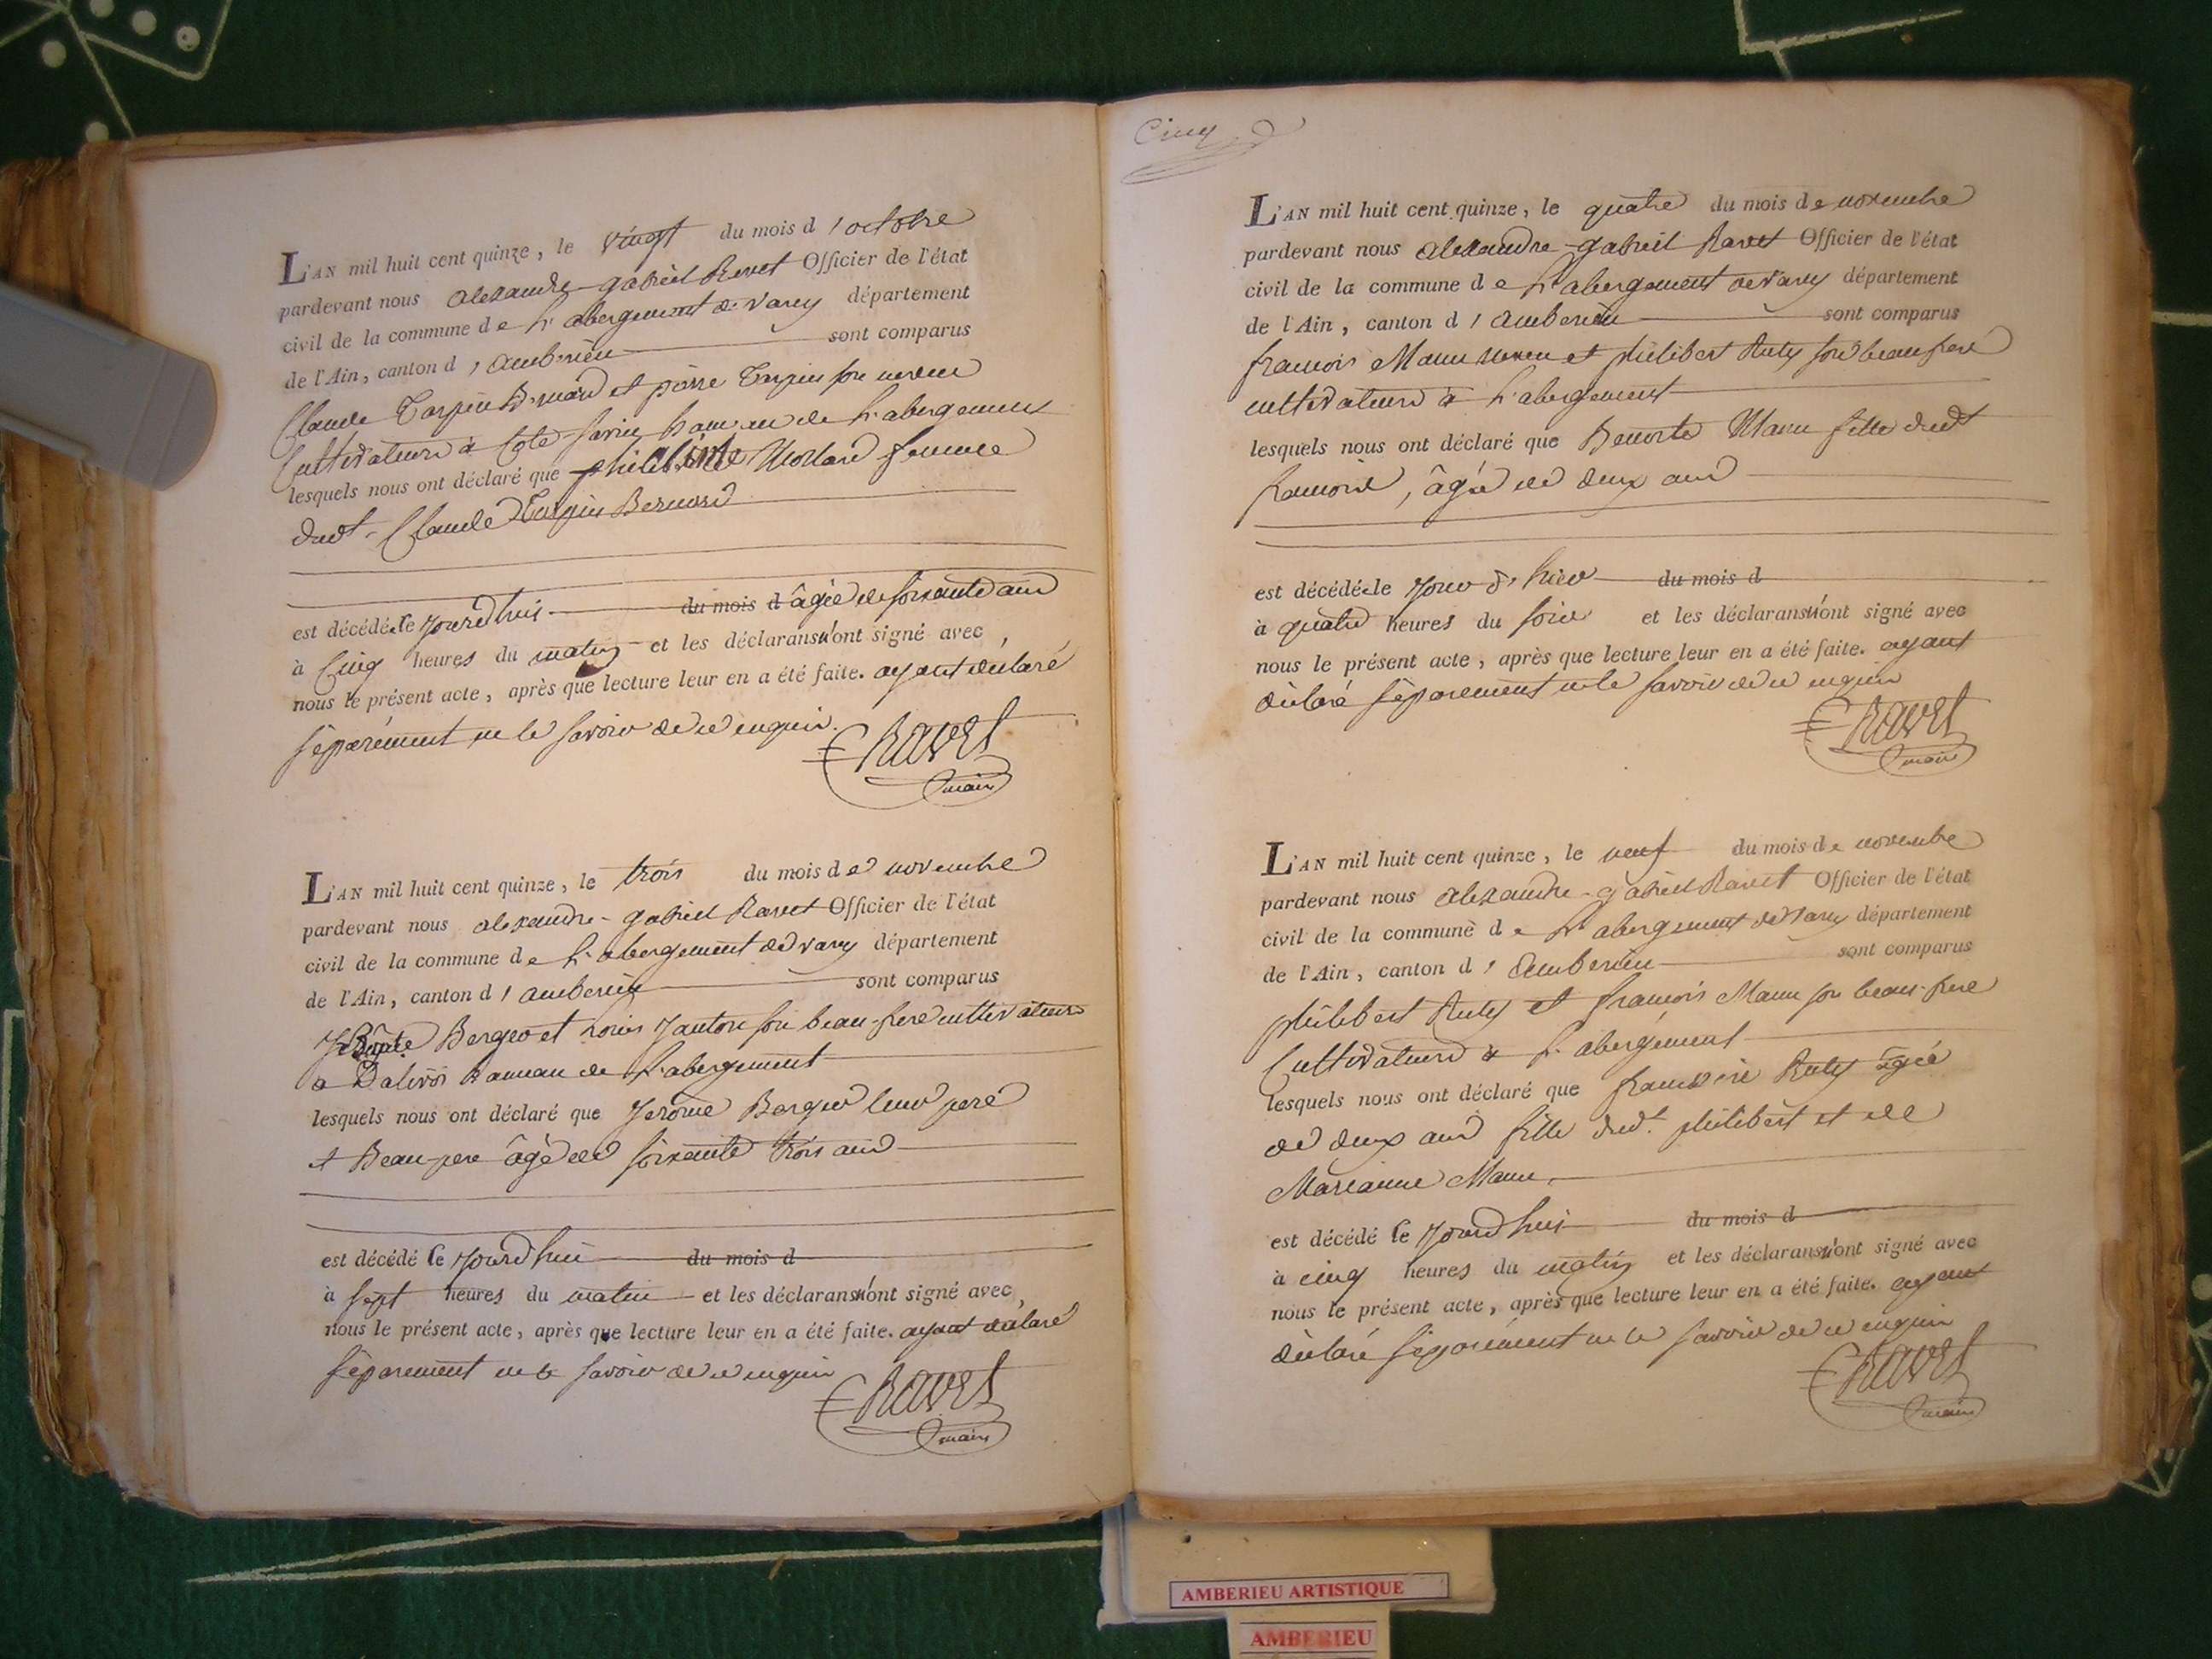 L'AN mil huit cent quinze, le vingt du mois d'octobre
pardevant nous alexandre-gabriel Ravet Officier de l'état
civil de la commune de L'abergement de varey département
de l'Ain, canton d'amberieu sont comparus
Claude Tarpin Bernard et pierre Tarpin son neveu
Cultivateurs à Cote-savin hameau de L'abergement
lesquels nous ont déclaré que philiberte Mollard femme
dudt. Claude Tarpin Bernard
est décédée le jourdhui du mois d âgée de soixante ans
à Cinq heures du matin et les déclarans n'ont signé avec
nous le présent acte, après que lecture leur en a été faite. ayant déclaré
séparément ne le savoir de ce enquis.
Ravet
maire
L'AN mil huit cent quinze, le trois du mois de novembre
pardevant nous alexandre-gabriel Ravet Officier de l'état
civil de la commune de L'abergement de varey département
de l'Ain, canton d'amberieu sont comparus
Berger et Louis Janton son beau-frere cultivateurs
a Dalivoi hameau de L'abergement
lesquels nous ont déclaré que Jerôme Berger leur pere
et Beau-pere âgé de soixante trois ans
est décédé le jourdhui du mois d
à sept heures du matin et les déclarans n'ont signé avec
nous le présent acte, après que lecture leur en a été faite. ayant déclaré
séparement ne le savoir de ce enquis
Ravet
maire
Cinq
L'AN mil huit cent quinze, le quatre du mois de novembre
pardevant nous alexandre-gabriel Ravet Officier de l'état
civil de la commune de L'abergement de varey département
de l'Ain, canton d'amberieu sont comparus
francois et philibert Ruty son beau frere
cultivateurs à L'abergement
lesquels nous ont déclaré que Benoite fille dudt
francois, âgée de deux ans
est décédée le jour d'hier du mois d
à quatre heures du soir et les déclarans n'ont signé avec
nous le présent acte, après que lecture leur en a été faite. ayant
déclaré séparement ne le savoir de ce enquis
Ravet
maire
L'AN mil huit cent quinze, le neuf du mois de novembre
pardevant nous alexandre-gabriel Ravet Officier de l'état
civil de la commune de L'abergement de varey département
de l'Ain, canton d'amberieu sont comparus
philibert Ruty et francois son beau-frere
Cultivateurs à L'abergement
lesquels nous ont déclaré que francoise Ruty âgée
de deux ans fille dudt. philibert et de
Marianne
est décédé le jourdhui du mois d
à cinq heures du matin et les déclarans n'ont signé avec
nous le présent acte, après que lecture leur en a été faite. ayant
déclaré séparément ne le savoir de ce enquis
Ravet
maire
AMBERIEU ARTISTIQUE
AMBERIEU